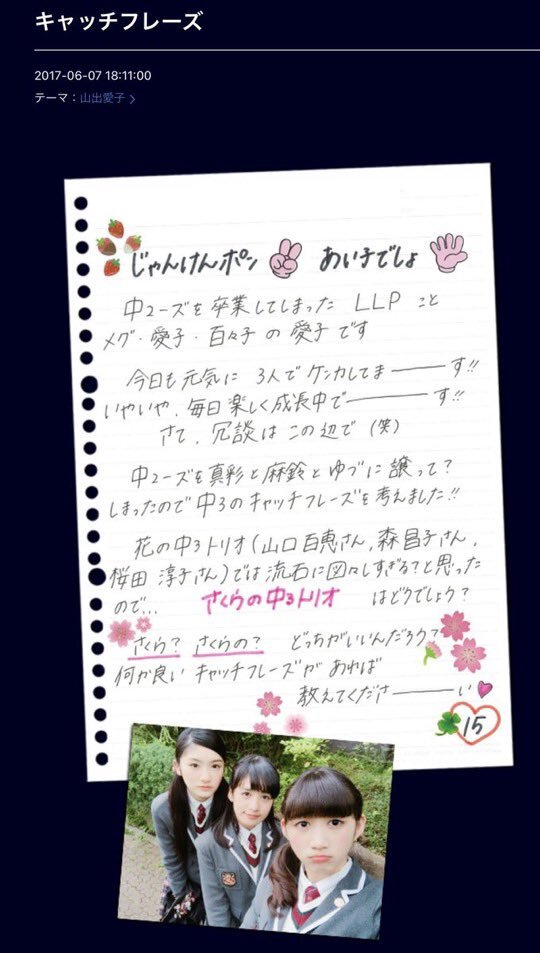 キャッチフレーズ
2017-06-07 18:11:00
テーマ：山出愛子 >
じゃんけんポン あい子でしょ
中2ーズを卒業してしまった LLP こと
メグ・愛子・百々子 の 愛子 です
今日も元気に 3人で ケンカしてまーーーす!!
いやいや、毎日楽しく成長中でーーーす!!
さて、冗談は この辺で (笑)
中2ーズを真彩と麻鈴とゆづに譲って?
しまったので中3のキャッチフレーズを考えました!!
花の中3トリオ(山口百恵さん、森昌子さん、
桜田 淳子さん)では流石に図々しすぎる?と思った
ので… さくらの中3トリオ はどうでしょう?
さくら? さくらの? どっちがいいんだろう?
何か良い キャッチフレーズが あれば
教えてくださーーーい
15